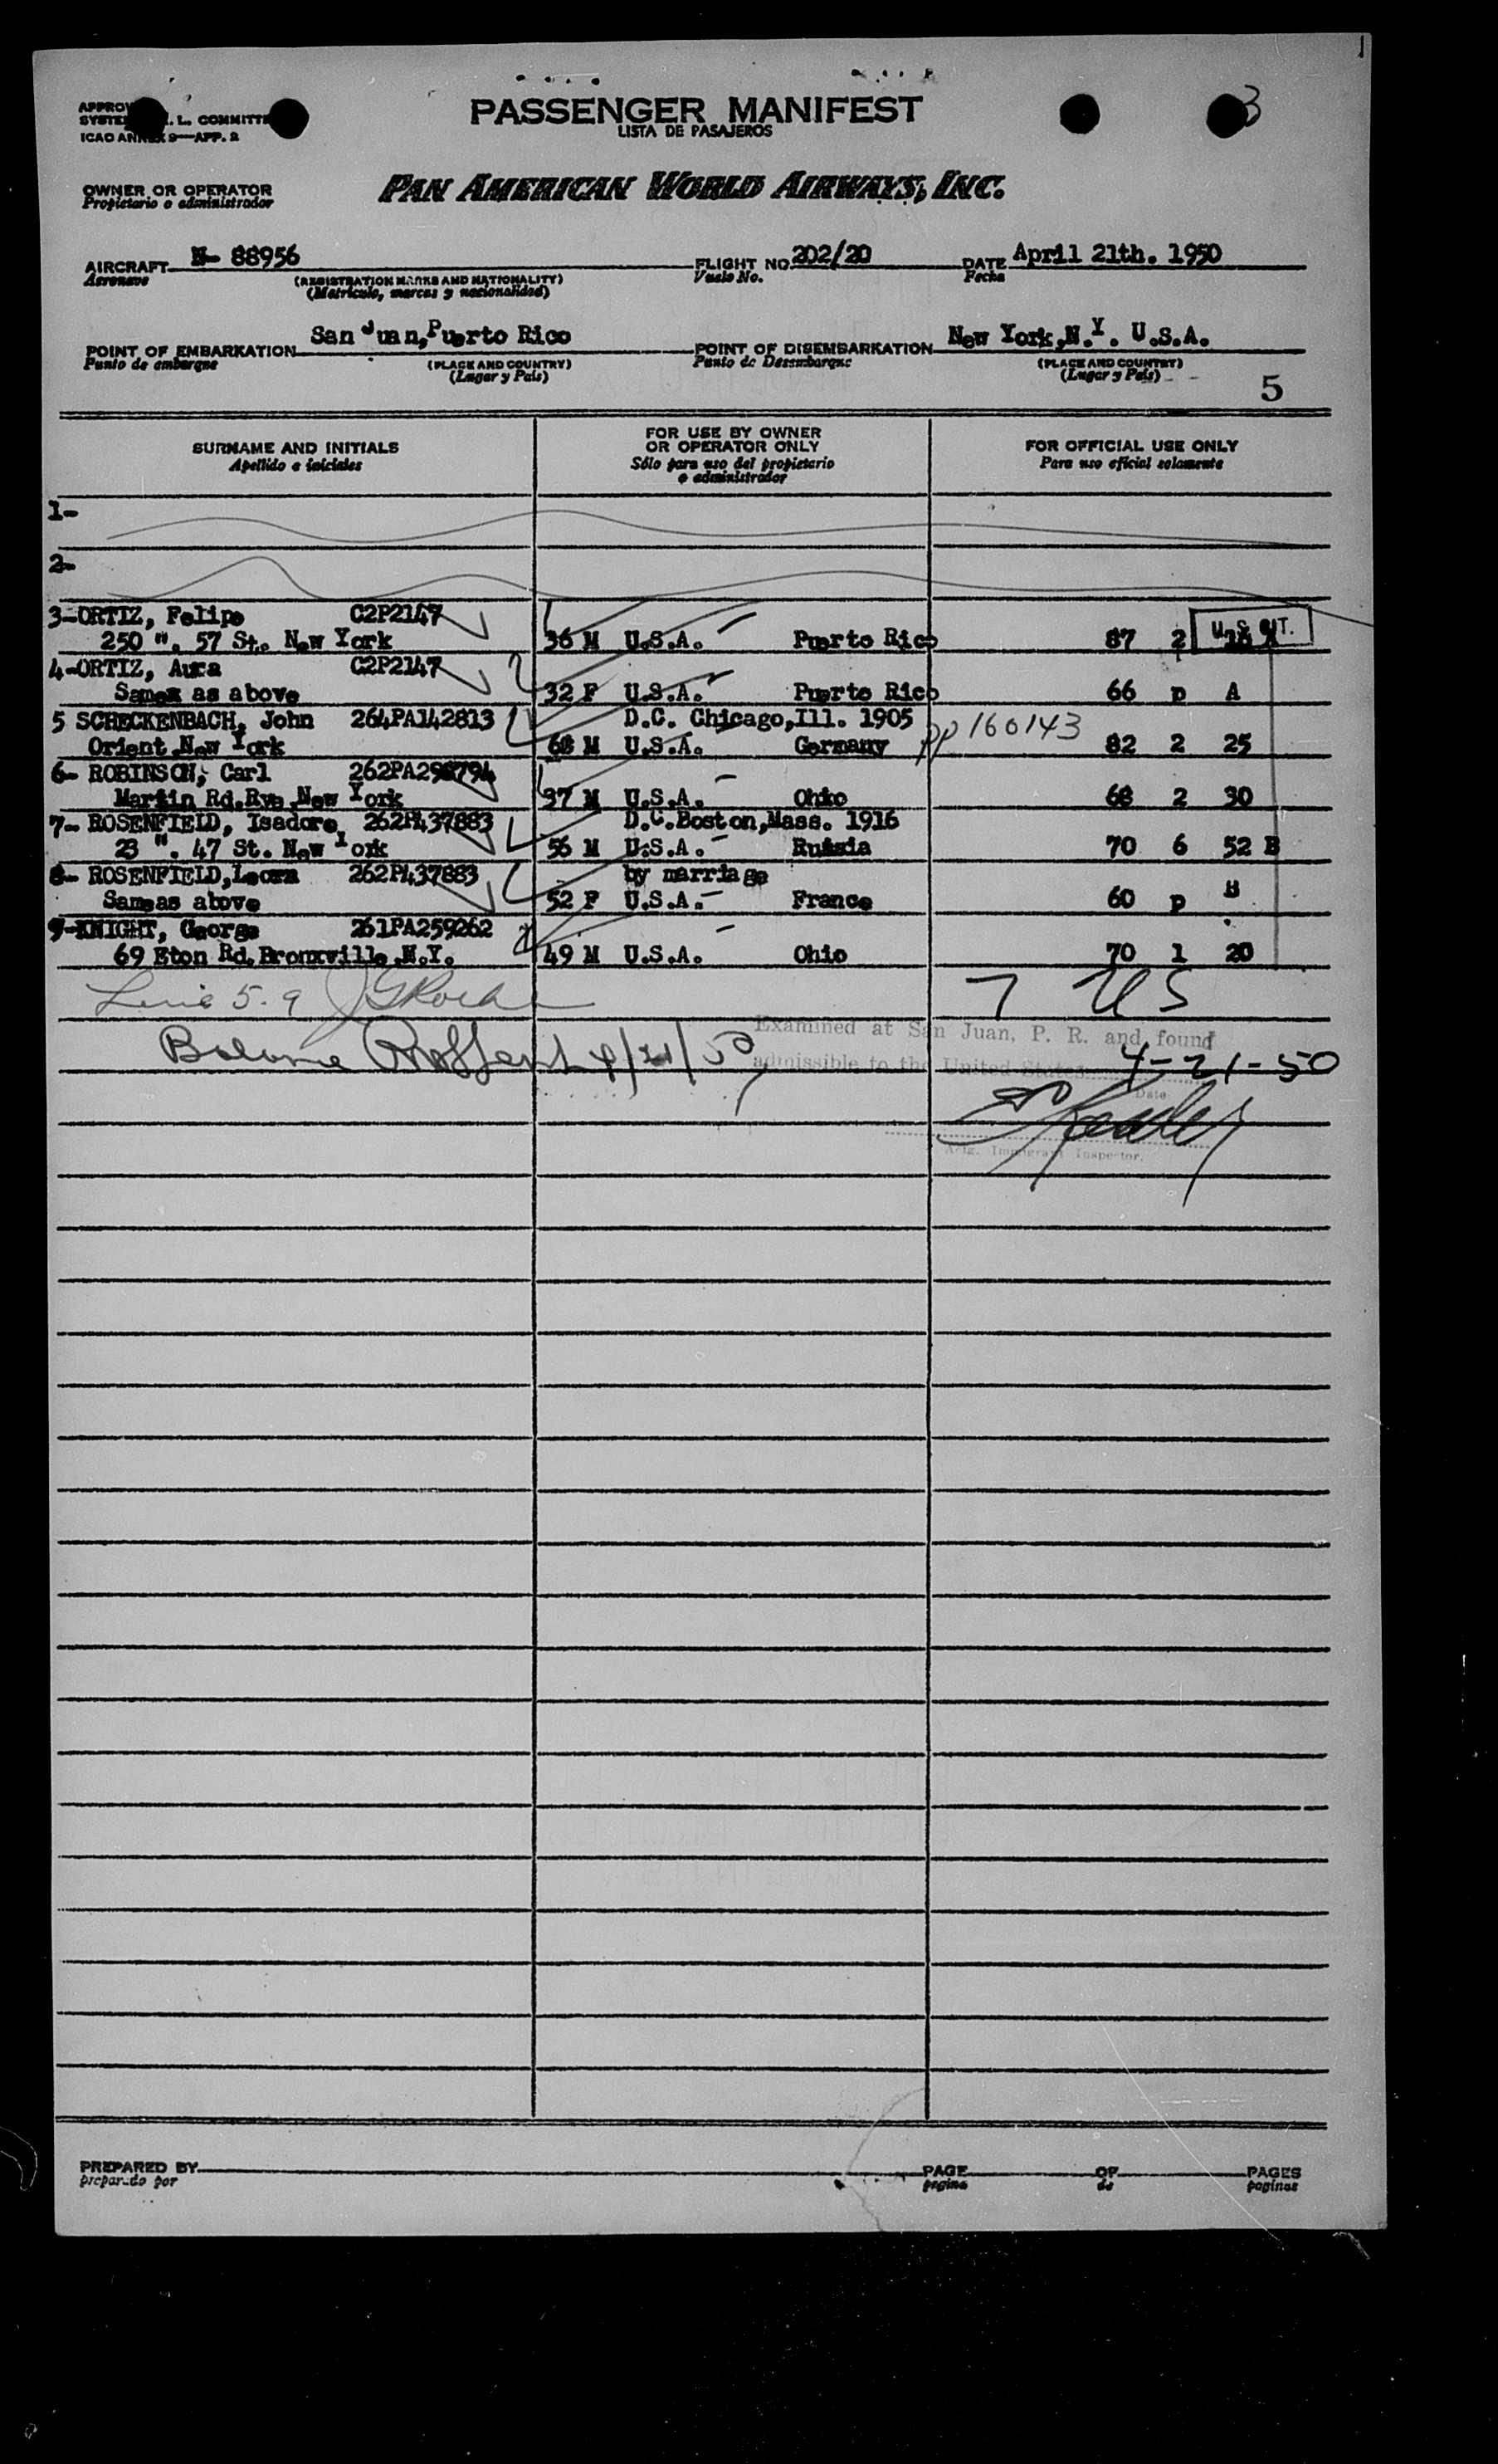 3
PASSENGER MANIFEST
LISTA DE PASAJEROS
ICAO ANNEX 9—APP. 2
OWNER OR OPERATOR
Propietario o administrador
PAN AMERICAN WORLD AIRWAYS, INC.
AIRCRAFT N- 88956 FLIGHT NO. 202/20 DATE April 21th. 1950
Aeronave Vuelo No. Fecha
(REGISTRATION MARKS AND NATIONALITY)
(Matricula, marcas y nacionalidad)
POINT OF EMBARKATION San Juan, Puerto Rico POINT OF DISEMBARKATION New York, N.Y. U.S.A.
Punto de embarque (PLACE AND COUNTRY) Punto de Desembarque (PLACE AND COUNTRY)
(Lugar y País) (Lugar y País)
5
SURNAME AND INITIALS FOR USE BY OWNER OR OPERATOR ONLY FOR OFFICIAL USE ONLY
Apellido e iniciales Sólo para uso del propietario o administrador Para uso oficial solamente
1-
2-
3-ORTIZ, Felipe C2P2147 U.S. CIT.
250 W. 57 St. New York 36 M U.S.A. Puerto Rico 87 2
4-ORTIZ, Aura C2P2147
Samex as above 32 F U.S.A. Puerto Rico 66 p A
5 SCHECKENBACH, John 264PA142813 D.C. Chicago,Ill. 1905 pp 160143
Orient New York 68 M U.S.A. Germany 82 2 25
6- ROBINSON, Carl
Martin Rd.Rye New York 37 M U.S.A. Ohio 68 2 30
7- ROSENFIELD, Isadore 262P437883 D.C.Boston,Mass. 1916
23 W. 47 St. New York 56 M U.S.A. Russia 70 6 52 B
8- ROSENFIELD,Leora 262P437883 by marriage
Sameas above 52 F U.S.A. France 60 p B
9-KNIGHT, George 261PA259262
69 Eton Rd.Bronxville N.Y. 49 M U.S.A. Ohio 70 1 20
Line 5-9 7 US
Examined at San Juan, P. R. and found
Balance 4/21/50 admissible to the United States 4-21-50
Date
Actg. Immigrant Inspector.
PREPARED BY PAGE OF PAGES
preparado por pagina de paginas